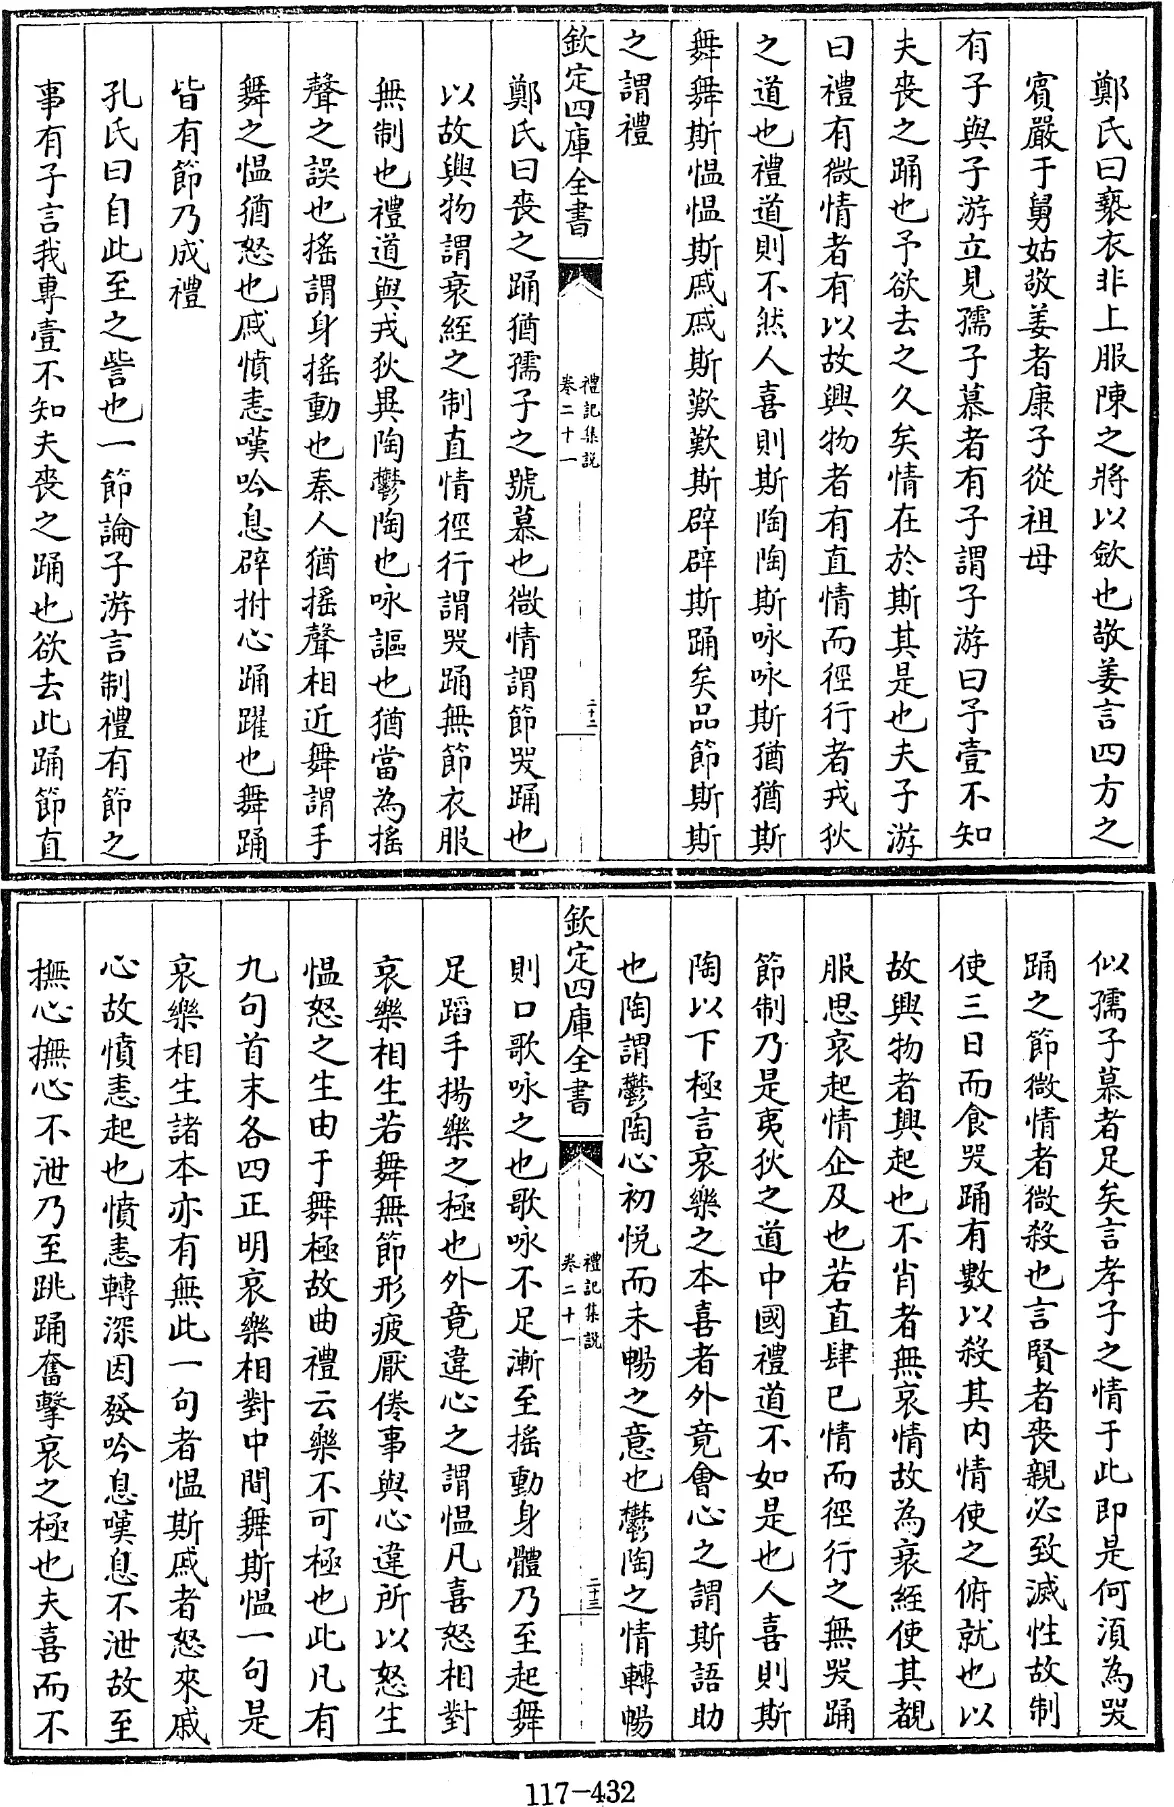 鄭氏曰褻衣非上服陳之將以斂也敬姜言四方之
賓嚴于舅姑敬姜者康子從祖母
有子與子游立見孺子慕者有子謂子游曰予壹不知
夫喪之踊也予欲去之久矣情在於斯其是也夫子游
曰禮有微情者有以故興物者有直情而徑行者戎狄
之道也禮道則不然人喜則斯陶陶斯咏咏斯猶猶斯
舞舞斯慍慍斯戚戚斯歎歎斯辟辟斯踊矣品節斯斯
之謂禮
欽定四庫全書
禮記集説
卷二十一
二十二
鄭氏曰喪之踊猶孺子之號慕也微情謂節哭踊也
以故興物謂衰絰之制直情徑行謂哭踊無節衣服
無制也禮道與戎狄異陶鬱陶也咏謳也猶當為搖
聲之誤也搖謂身搖動也秦人猶搖聲相近舞謂手
舞之慍猶怒也戚憤恚嘆吟息辟拊心踊躍也舞踊
皆有節乃成禮
孔氏曰自此至之訾也一節論子游言制禮有節之
事有子言我專壹不知夫喪之踊也欲去此踊節直
似孺子慕者足矣言孝子之情于此即是何須為哭
踊之節微情者微殺也言賢者喪親必致滅性故制
使三日而食哭踊有數以殺其內情使之俯就也以
故興物者興起也不肖者無哀情故為衰絰使其覩
服思哀起情企及也若直肆已情而徑行之無哭踊
節制乃是夷狄之道中國禮道不如是也人喜則斯
陶以下極言哀樂之本喜者外竟會心之謂斯語助
也陶謂鬱陶心初悅而未暢之意也鬱陶之情轉暢
欽定四庫全書
禮記集説
卷二十一
二十三
則口歌咏之也歌咏不足漸至搖動身體乃至起舞
足蹈手揚樂之極也外竟違心之謂慍凡喜怒相對
哀樂相生若舞無節形疲厭倦事與心違所以怒生
慍怒之生由于舞極故曲禮云樂不可極也此凡有
九句首末各四正明哀樂相對中間舞斯慍一句是
哀樂相生諸本亦有無此一句者慍斯戚者怒來戚
心故憤恚起也憤恚轉深因發吟息嘆息不泄故至
撫心撫心不泄乃至跳踊奮擊哀之極也夫喜而不
117-432